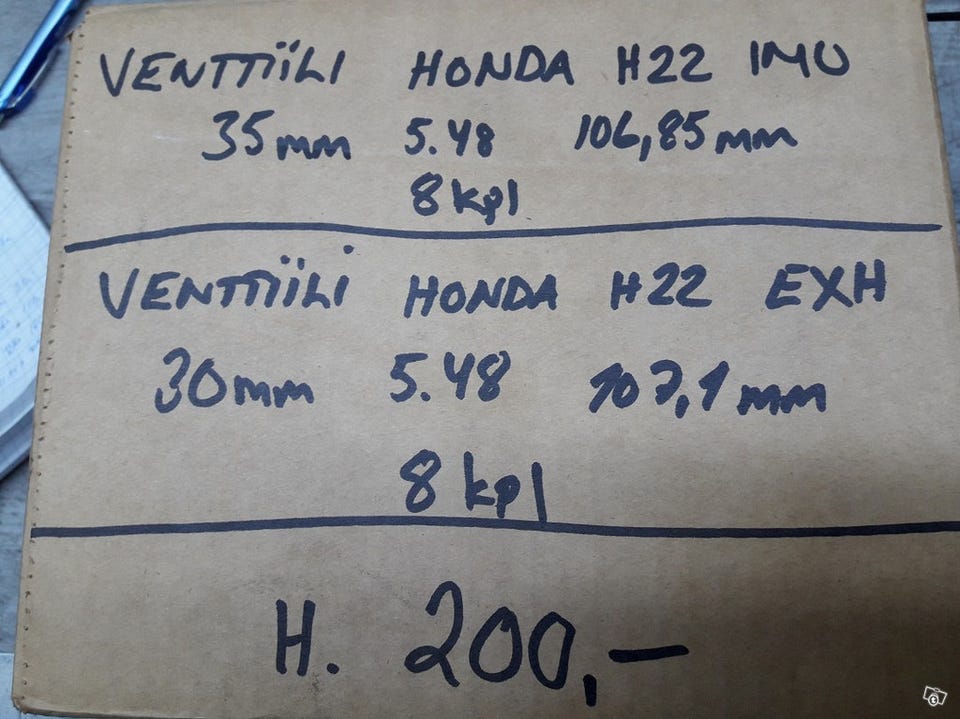 VENTTIILI HONDA H22 IMU
35mm 5.48 106,85mm
8 kpl
VENTTIILI HONDA H22 EXH
30mm 5.48 107,1 mm
8 kpl
H. 200,-